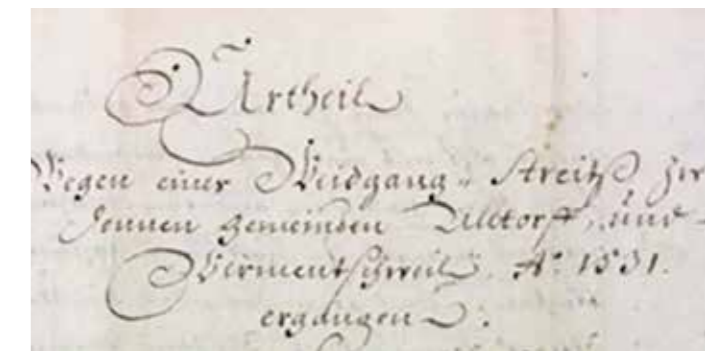 Urtheil
Wegen einer Weidgang- Streits zw
gemeinden Alltorff, und
Wermentschweil. Aº. 1531.
ergangen.